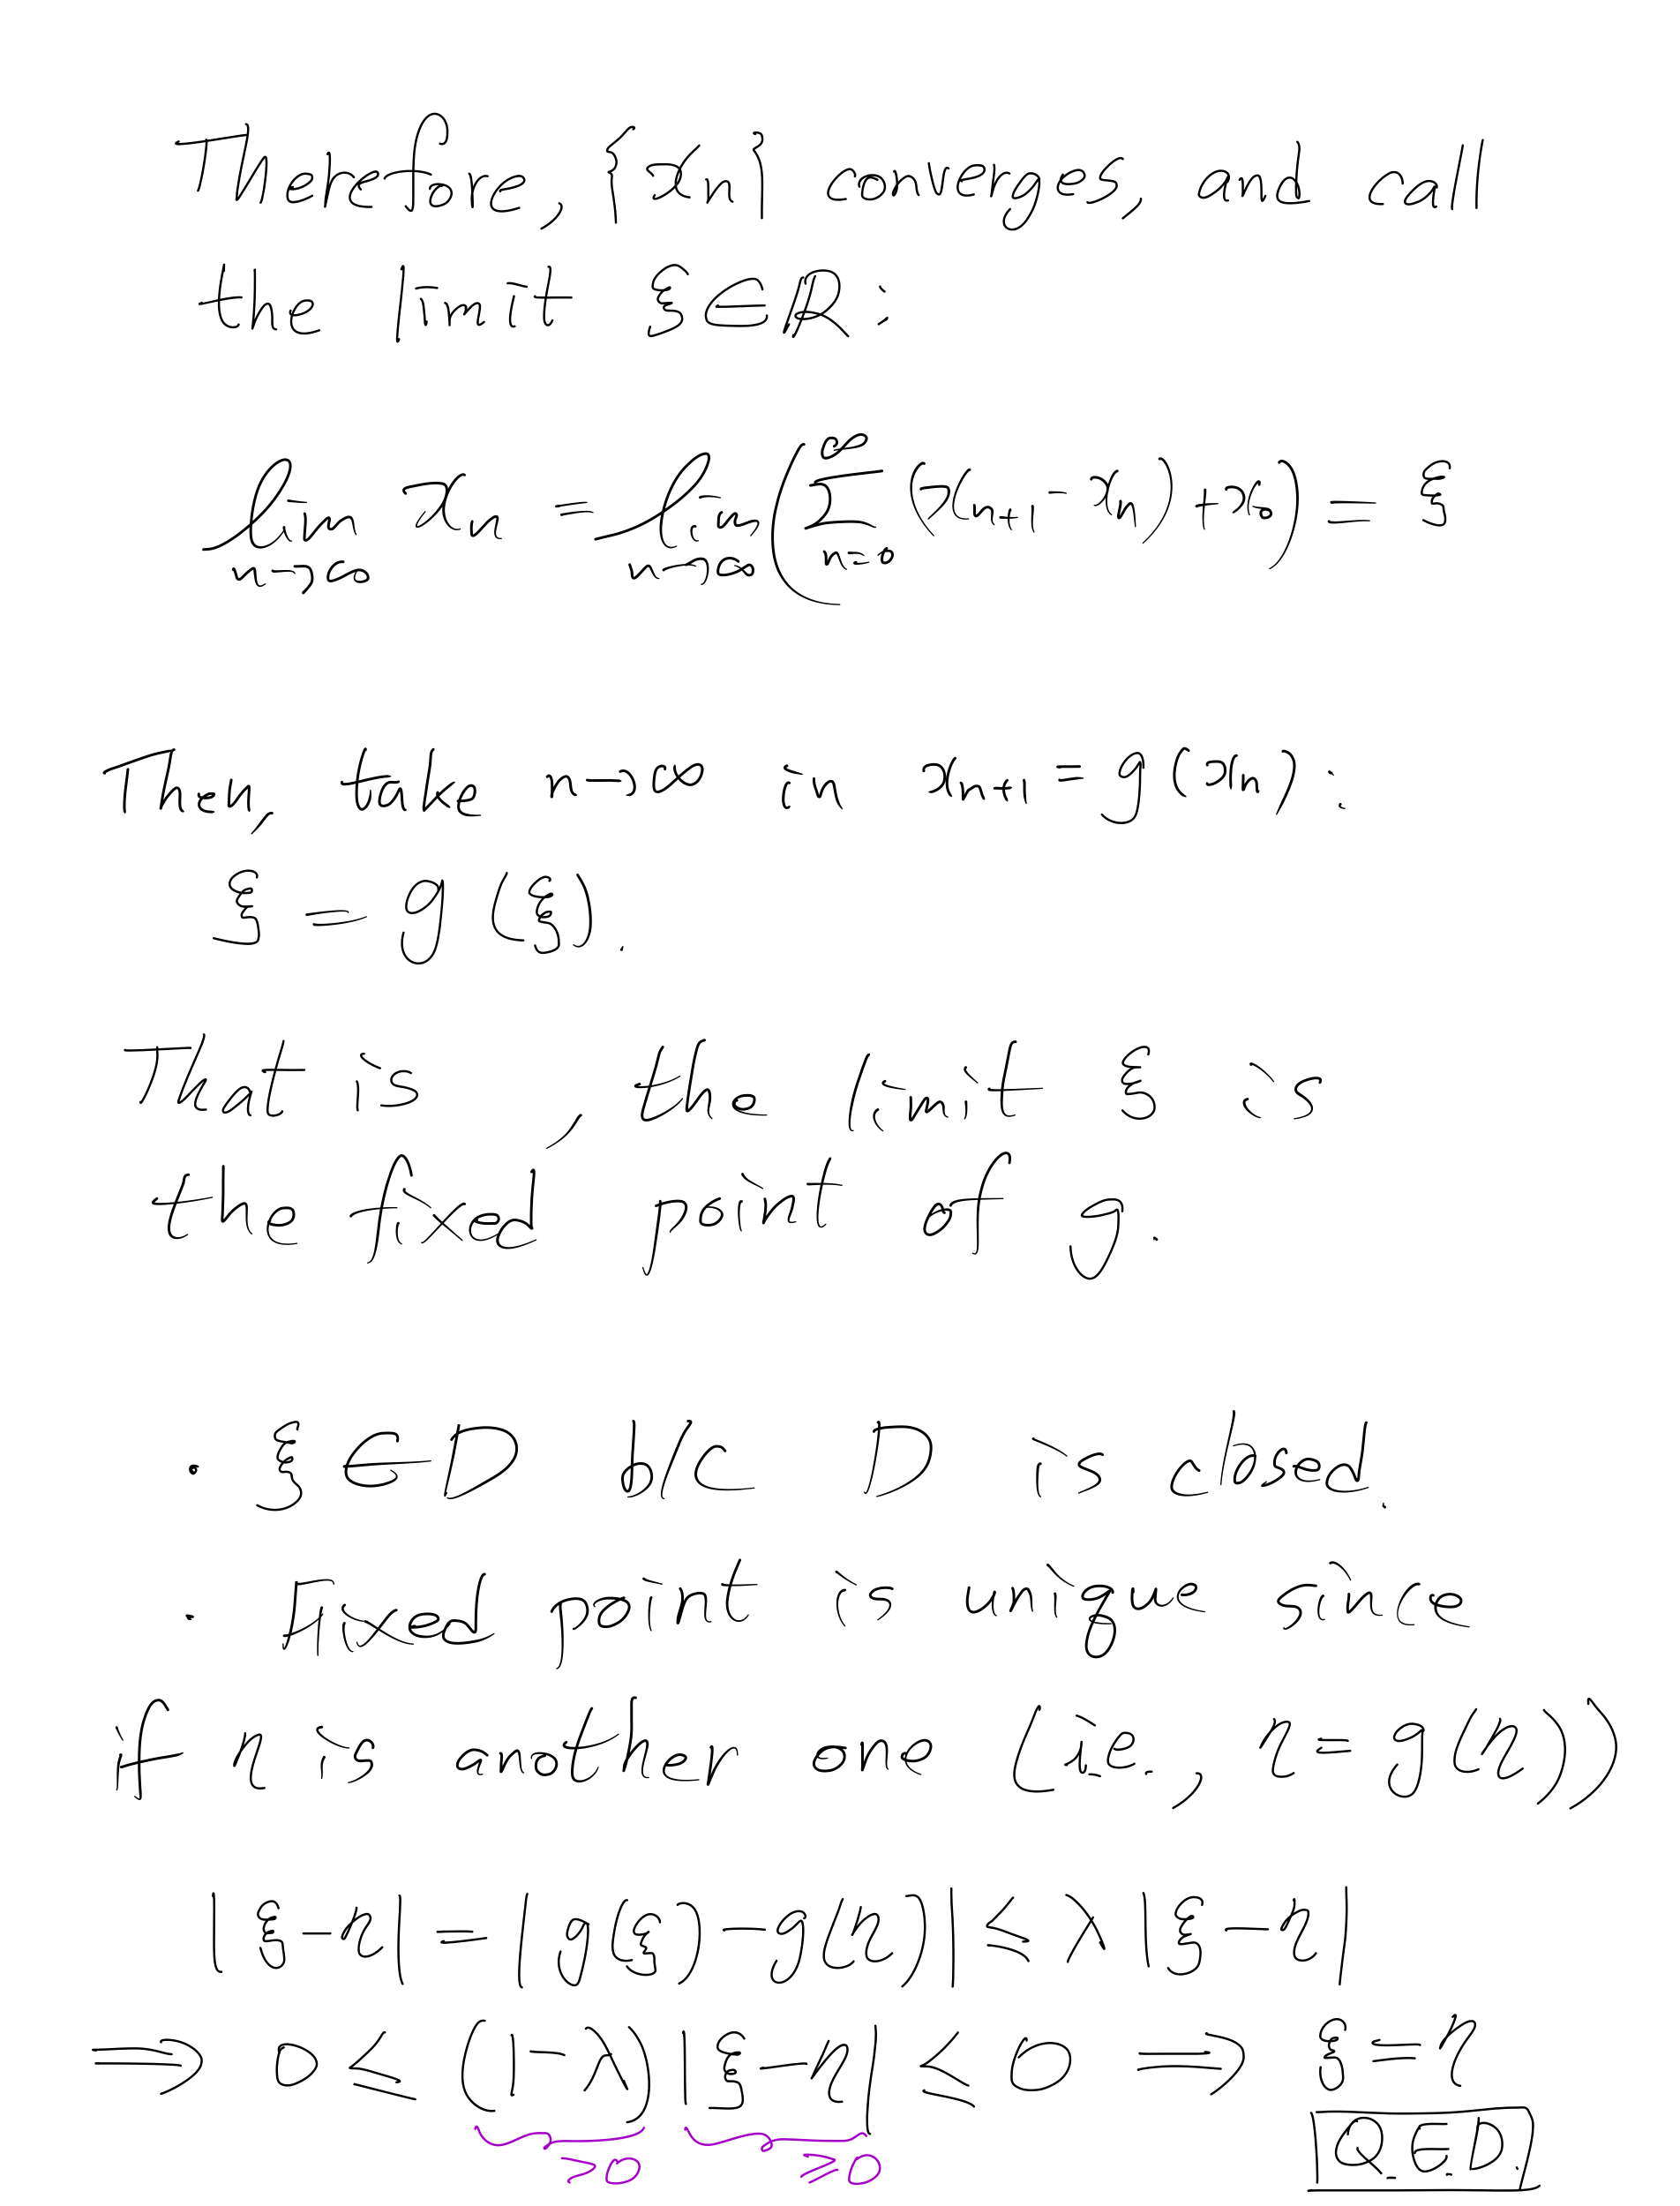 Therefore, {xn} converges, and call
the limit ξ∈R:
lim n→∞ xn = lim n→∞ (∑ n=0 ∞ (xn+1 - xn) + x0) = ξ
Then, take n→∞ in xn+1 = g(xn):
ξ = g(ξ).
That is, the limit ξ is
the fixed point of g.
• ξ∈D b/c D is closed.
• Fixed point is unique since
if η is another one (i.e., η = g(η))
|ξ-η| = |g(ξ)-g(η)| ≤ λ|ξ-η|
⟹ 0 ≤ (1-λ)|ξ-η| ≤ 0 ⟹ ξ=η
>0 ≥0
Q.E.D.